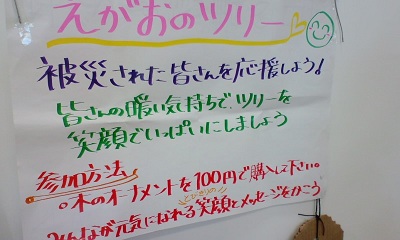 えがおのツリー
被災された皆さんを応援しよう!
皆さんの暖い気持ちで、ツリーを
笑顔でいっぱいにしましょう
参加方法
。木のオーナメントを100円で購入して下さい。
とびきりの
みんなが元気になれる笑顔とメッセージをかこう